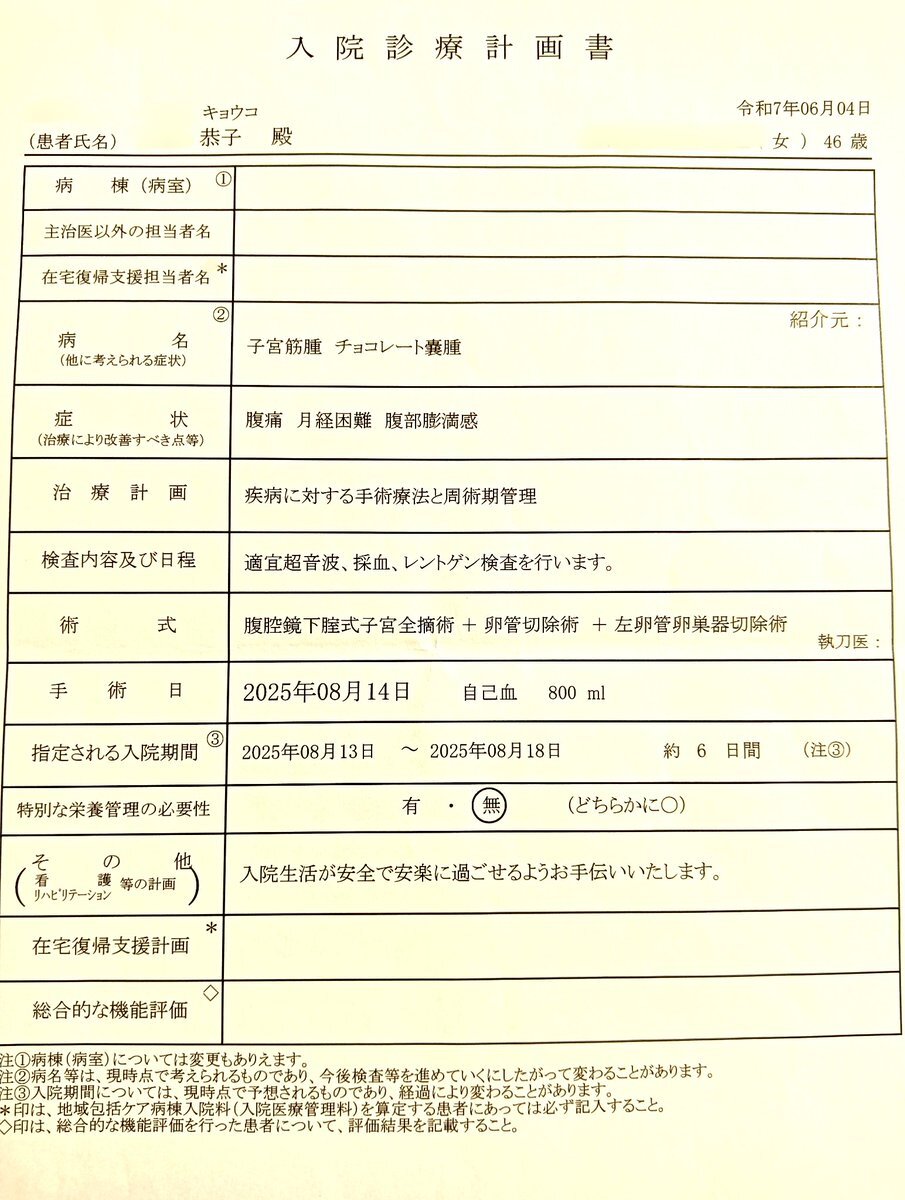 入院診療計画書
キョウコ
令和7年06月04日
(患者氏名) 恭子 殿 女 ) 46 歳
病棟(病室) ①
主治医以外の担当者名
在宅復帰支援担当者名 *
病名 ②
(他に考えられる症状)
子宮筋腫 チョコレート嚢腫
紹介元:
症状
(治療により改善すべき点等)
腹痛 月経困難 腹部膨満感
治療計画
疾病に対する手術療法と周術期管理
検査内容及び日程
適宜超音波、採血、レントゲン検査を行います。
術式
腹腔鏡下腟式子宮全摘術 + 卵管切除術 + 左卵管卵巣器切除術
執刀医:
手術日
2025年08月14日 自己血 800 ml
指定される入院期間 ③
2025年08月13日 ~ 2025年08月18日 約 6 日間 (注③)
特別な栄養管理の必要性
有 ・ 無 (どちらかに○)
その他
(看護 等の計画)
リハビリテーション
入院生活が安全で安楽に過ごせるようお手伝いいたします。
在宅復帰支援計画 *
総合的な機能評価 ◇
注①病棟(病室)については変更もありえます。
注②病名等は、現時点で考えられるものであり、今後検査等を進めていくにしたがって変わることがあります。
注③入院期間については、現時点で予想されるものであり、経過により変わることがあります。
*印は、地域包括ケア病棟入院料(入院医療管理料)を算定する患者にあっては必ず記入すること。
◇印は、総合的な機能評価を行った患者について、評価結果を記載すること。